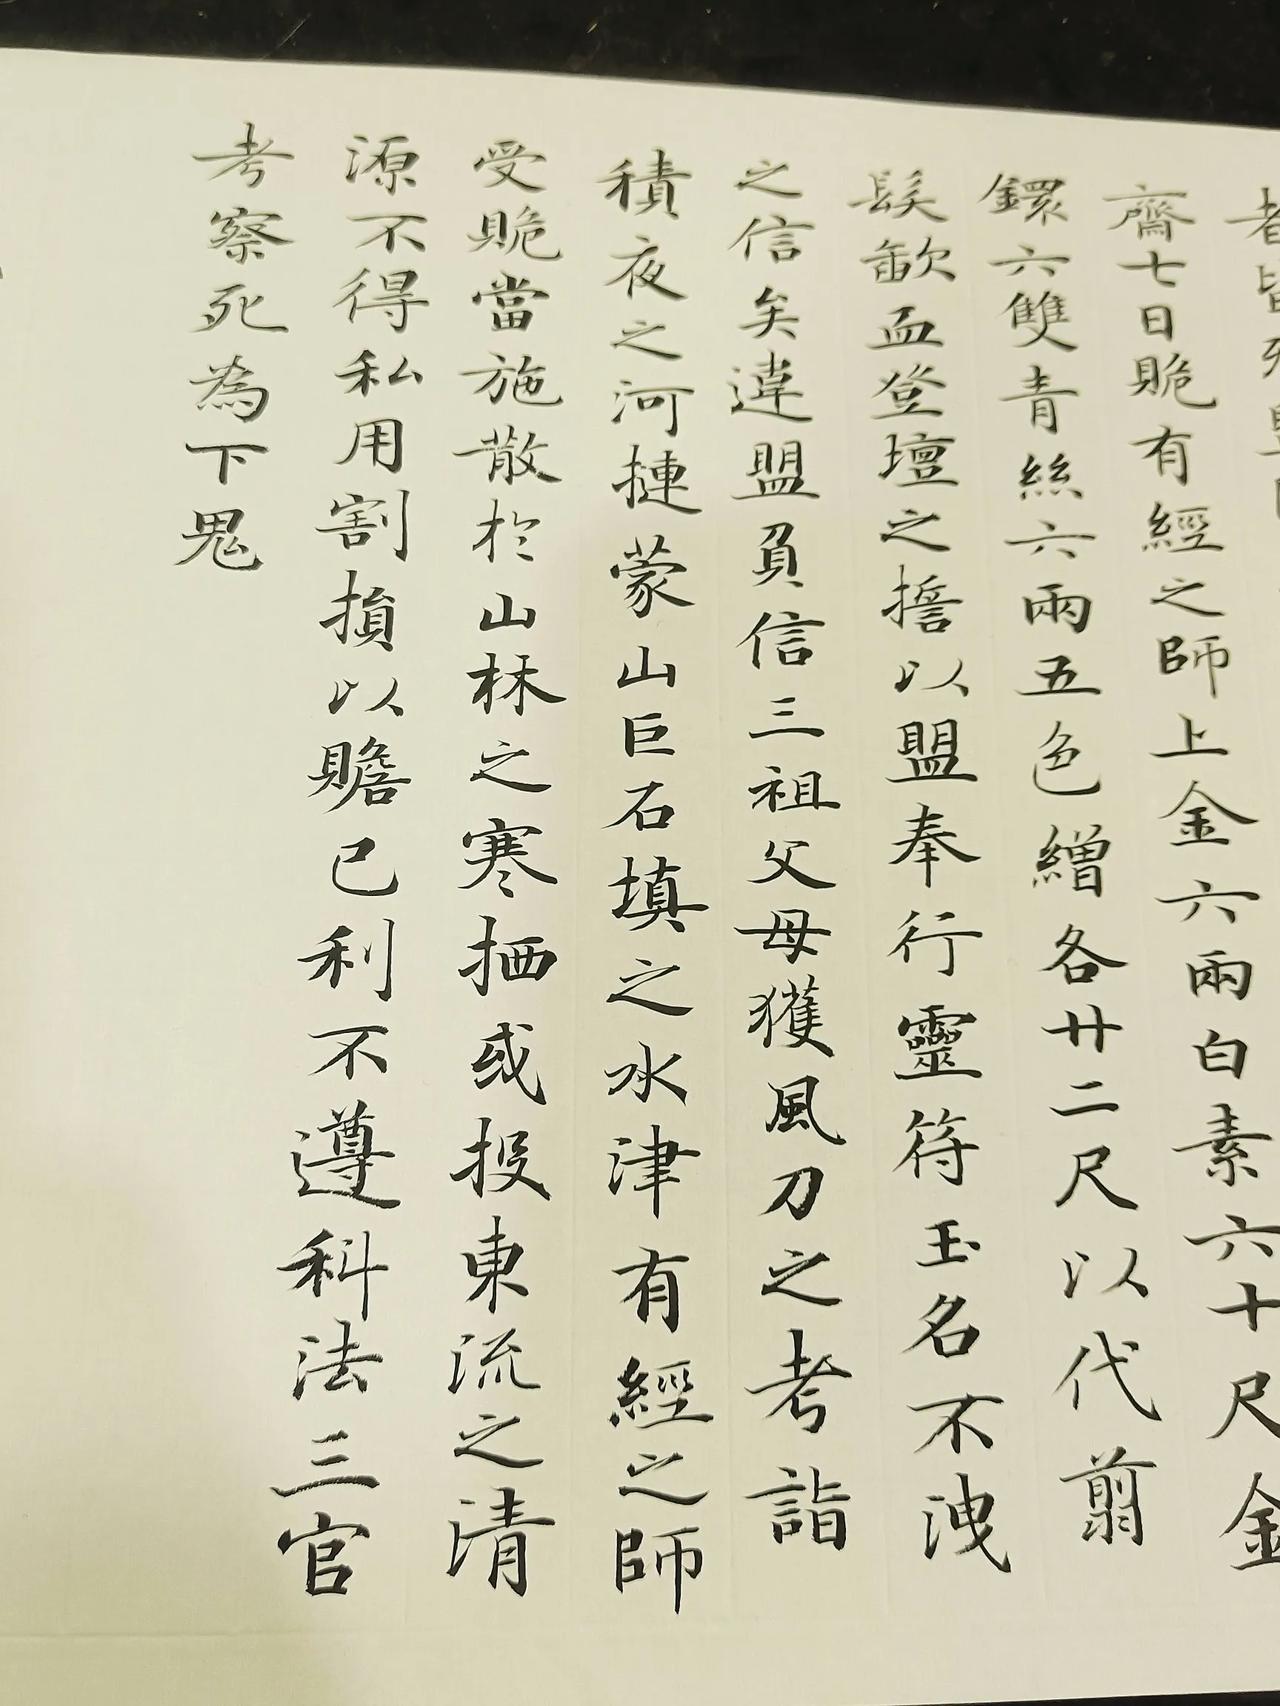 者皆列盟
齋七日賹有經之師上金六兩白素六十尺金
鐶六雙青絲六兩五色繒各廿二尺以代翦
髮歃血登壇之擔以盟奉行靈符玉名不洩
之信矣違盟負信三祖父母獲風刀之考詣
積夜之河摙蒙山巨石填之水津有經之師
受賹當施散於山林之寒栖或投東流之清
源不得私用割損以贍已利不遵科法三官
考察死為下鬼